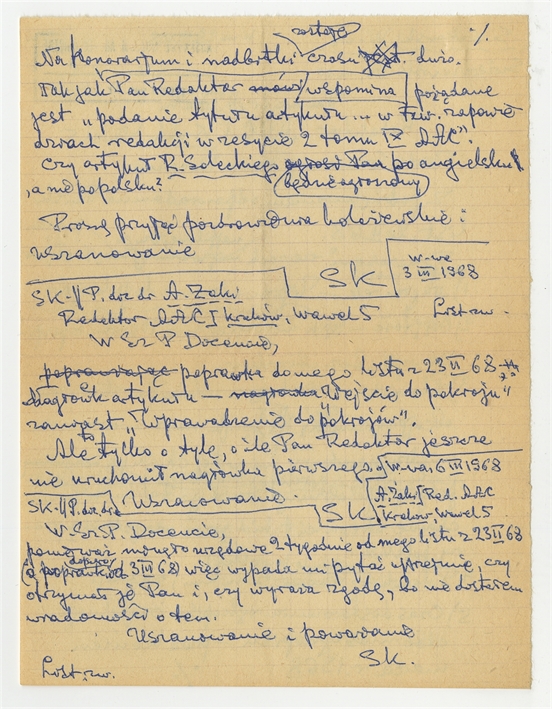 zostaje
./.
Na honorarjum i nadbitki czasu jest dużo.
Tak jak Pan Redaktor mówi wspomina pożądane
jest „podanie tytułu artykułu ... w tzw. zapowie
dziach redakcji w zeszycie 2 tomu IX AAC".
Czy artykuł R. Szleckiego ogłosi Pan po angielsku
, a nie popolsku?
będzie ogłoszony
Proszę przyjąć pozdrowienia koleżeńskie i
uszanowanie
SK
W-wa
3 III 1968
SK-// P. doc dr A. Żaki
Redaktor AAC Kraków, Wawel 5
List zw.
W Sz P Docencie,
poprawiając poprawka do mego listu z 23 II 68
Nagłówek artykułu — nagłówka „Wejście do pokroju"
zamiast „Wprowadzenie do pokrojów".
Ale to tylko o tyle, o ile Pan Redaktor jeszcze
nie uruchomił nagłówka pierwszego.
W-wa 6 III 1968
Uszanowanie.
SK-// P. doc. dra
SK
A. Żaki Red. AAC
Kraków, Wawel 5
W. Sz. P. Docencie,
ponieważ minęło wzędowe 2 tygodnie od mego listu z 23 II 68
dopiero
(a poprawk od 3 III 68) więc wypada mi pytać uprzejmie, czy
otrzymał je Pan i, czy wyraża zgodę, bo nie dostałem
wiadomości o tem.
Uszanowanie i poważanie
SK.
List zw.